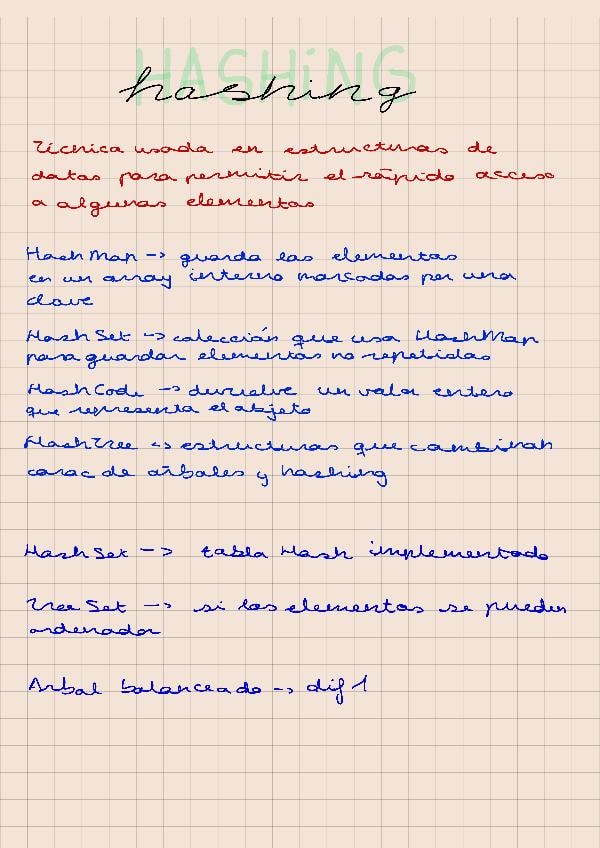 HASHiNG
hashing
Técnica usada en estructuras de
datos para permitir el rápido acceso
a algunas elementos
HashMap -> guarda los elementos
en un array interno marcados por una
clave
HashSet -> colección que usa HashMap
para guardar elementos no repetidos
HashCode -> devuelve un valor entero
que representa el objeto
HashTree -> estructuras que combinan
carac de árboles y hashing
HashSet -> tabla Hash implementado
TreeSet -> si los elementos se pueden
ordenador
Arbol balanceado -> dif 1